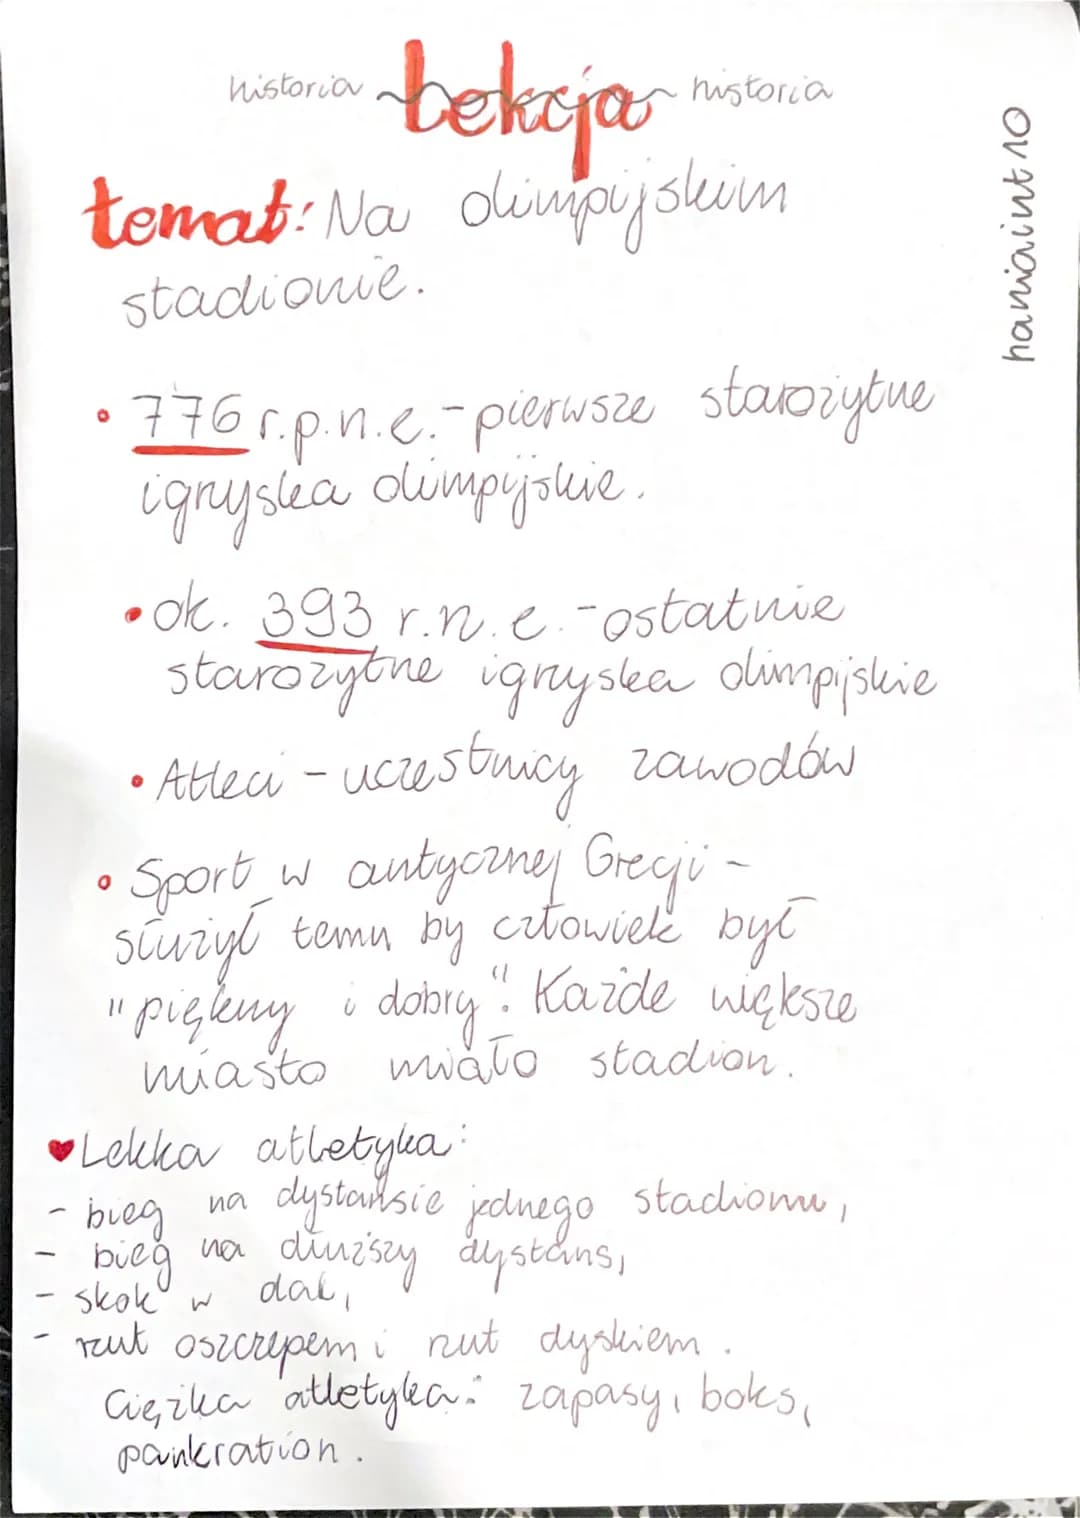 historia Lekcja historia
temat: Na olimpijskim
stadionie.
haniaint10
• 776 r.p.n.e. - pierwsze starożytne
igrzyska olimpijskie.
• ok. 393 r.n.e. - ostatnie
starożytne igrzyska olimpijskie
• Atleci - uczestnicy zawodów
• Sport w antycznej Grecji -
służył temu by człowiek był
"piękny i dobry". Każde większe
miasto miało stadion.
♥ Lekka atletyka:
- bieg na dystansie jednego stadionu,
- bieg na dłuższy dystans,
- skok w dal,
- rzut oszczepem i rzut dyskiem.
Ciężka atletyka: zapasy, boks,
pankration.